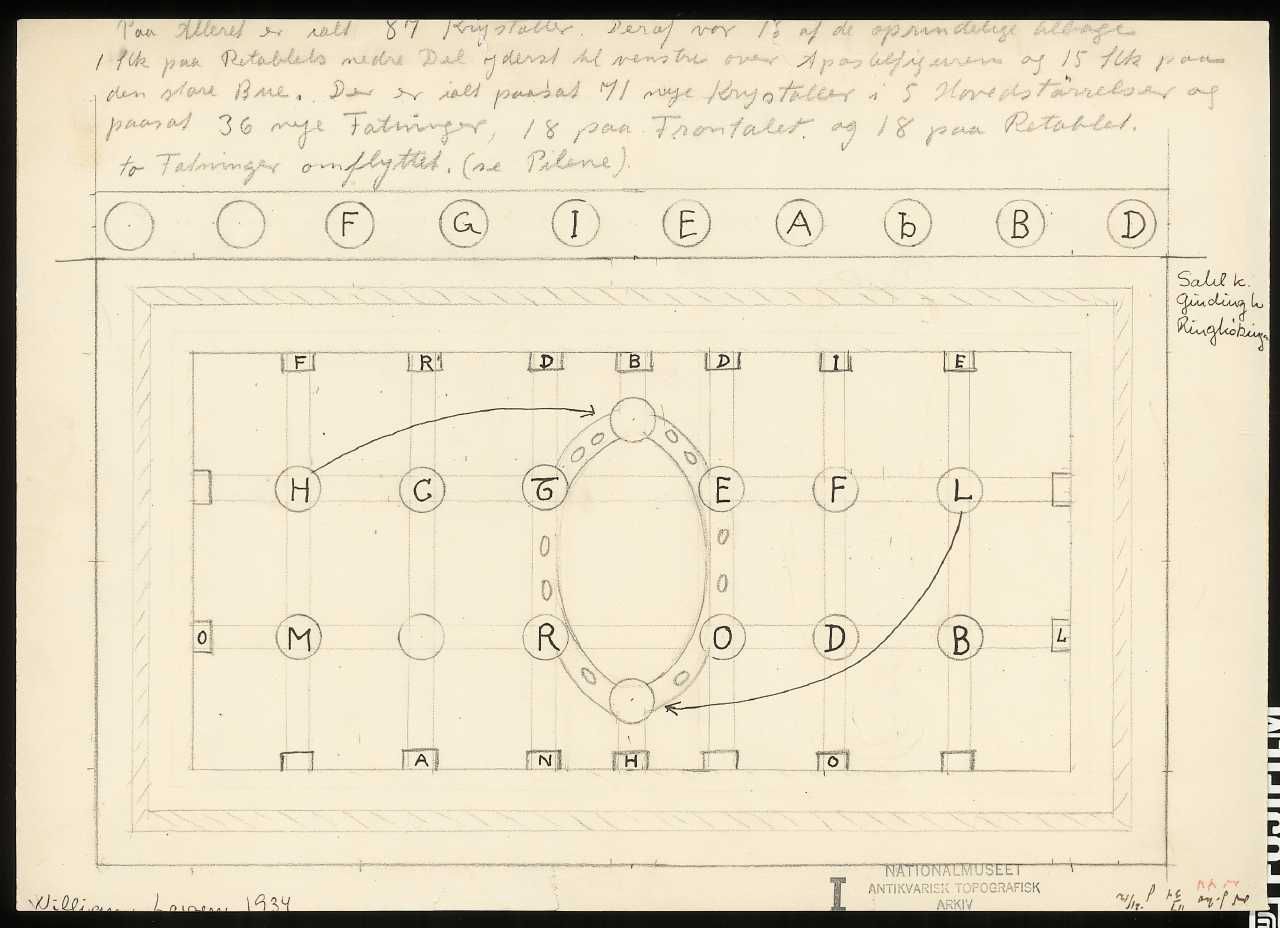 Paa Alteret er ialt 87 Krystaller. Deraf var 16 af de oprindelige tilbage
1 Stk paa Retablets nedre Del yderst til venstre over Apostelfigurerne og 15 Stk paa
den store Bue. Der er ialt paasat 71 nye Krystaller i 5 Hovedstörrelser og
paasat 36 nye Fatninger, 18 paa Frontalet. og 18 paa Retablet.
to Fatninger omflyttet. (se Pilene).
F G I E A b B D
Sahl k.
Ginding h
Ringköbing
F R D B D I E
H C G E F L
O M R O D B L
A N H O
NATIONALMUSEET
ANTIKVARISK TOPOGRAFISK
ARKIV
I
William Larsen 1934